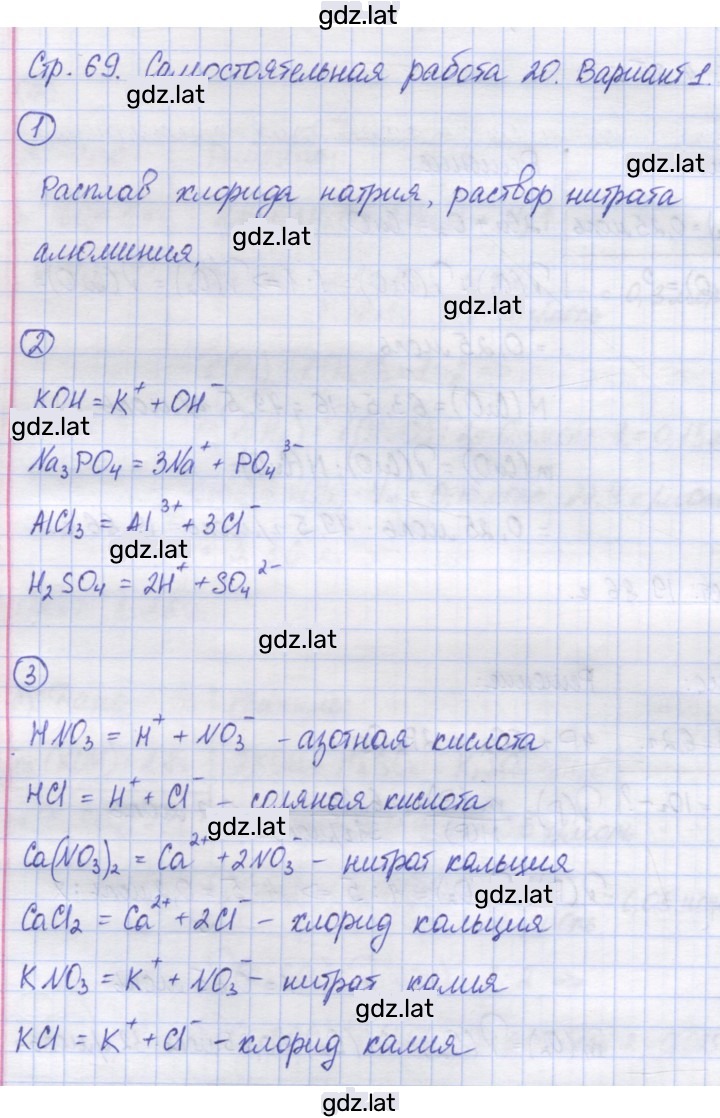 gdz.lat
Стр. 69. Самостоятельная работа 20. Вариант 1.
gdz.lat
1
gdz.lat
Расплав хлорида натрия, раствор нитрата
gdz.lat
алюминия.
gdz.lat
2
KOH = K⁺ + OH⁻
gdz.lat
Na₃PO₄ = 3Na⁺ + PO₄³⁻
AlCl₃ = Al³⁺ + 3Cl⁻
gdz.lat
H₂SO₄ = 2H⁺ + SO₄²⁻
gdz.lat
3
HNO₃ = H⁺ + NO₃⁻ - азотная кислота
HCl = H⁺ + Cl⁻ - соляная кислота
gdz.lat
Ca(NO₃)₂ = Ca²⁺ + 2NO₃⁻ - нитрат кальция
gdz.lat
CaCl₂ = Ca²⁺ + 2Cl⁻ - хлорид кальция
KNO₃ = K⁺ + NO₃⁻ - нитрат калия
gdz.lat
KCl = K⁺ + Cl⁻ - хлорид калия
gdz.lat